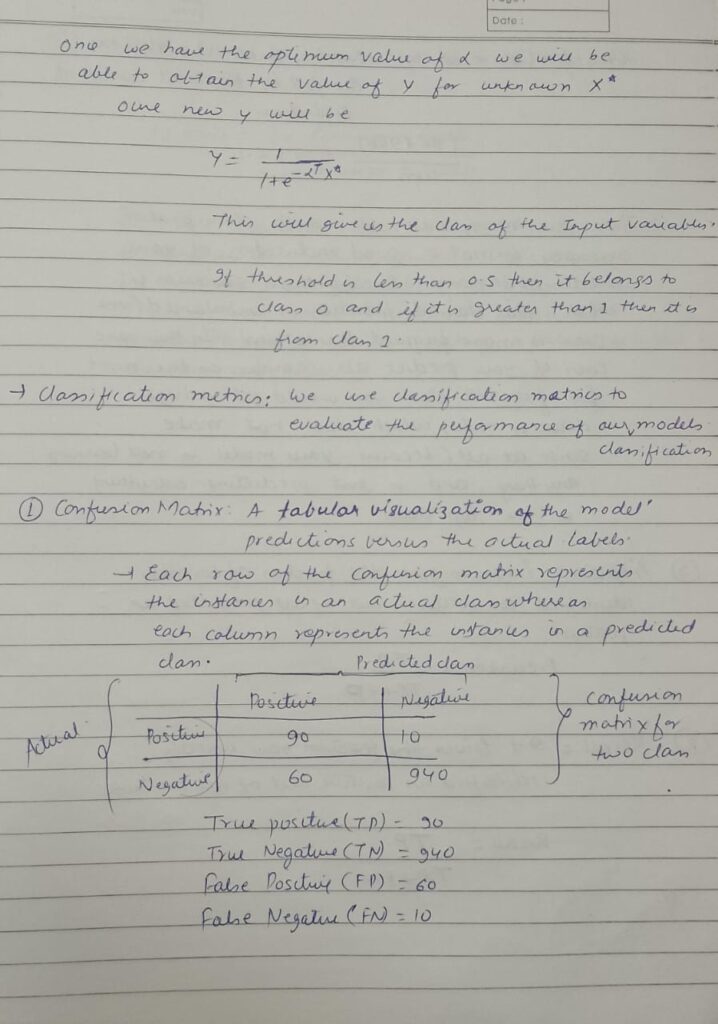 Date :
One we have the optemum value of α we will be
able to obtain the value of y for unknown X*
oure new y will be
Y = 1 / 1+e^-αᵀX*
This will give us the class of the Input variables.
If threshold is less than 0.5 then it belongs to
class 0 and if it is greater than 1 then it is
from class 1.
→ Classification metrics: We use classification matrics to
evaluate the performance of our models
classification
① Confusion Matrix: A tabular visualization of the model'
predictions versus the actual labels.
→ Each row of the confusion matrix represents
the instances in an actual class whereas
each column represents the instances in a predicted
class.
Predicted class
Positive Negative
Actual Positive 90 10
Negative 60 940
confusion
matrix for
two class
True positive (TP) - 90
True Negative (TN) = 940
False Positive (FP) = 60
False Negative (FN) = 10